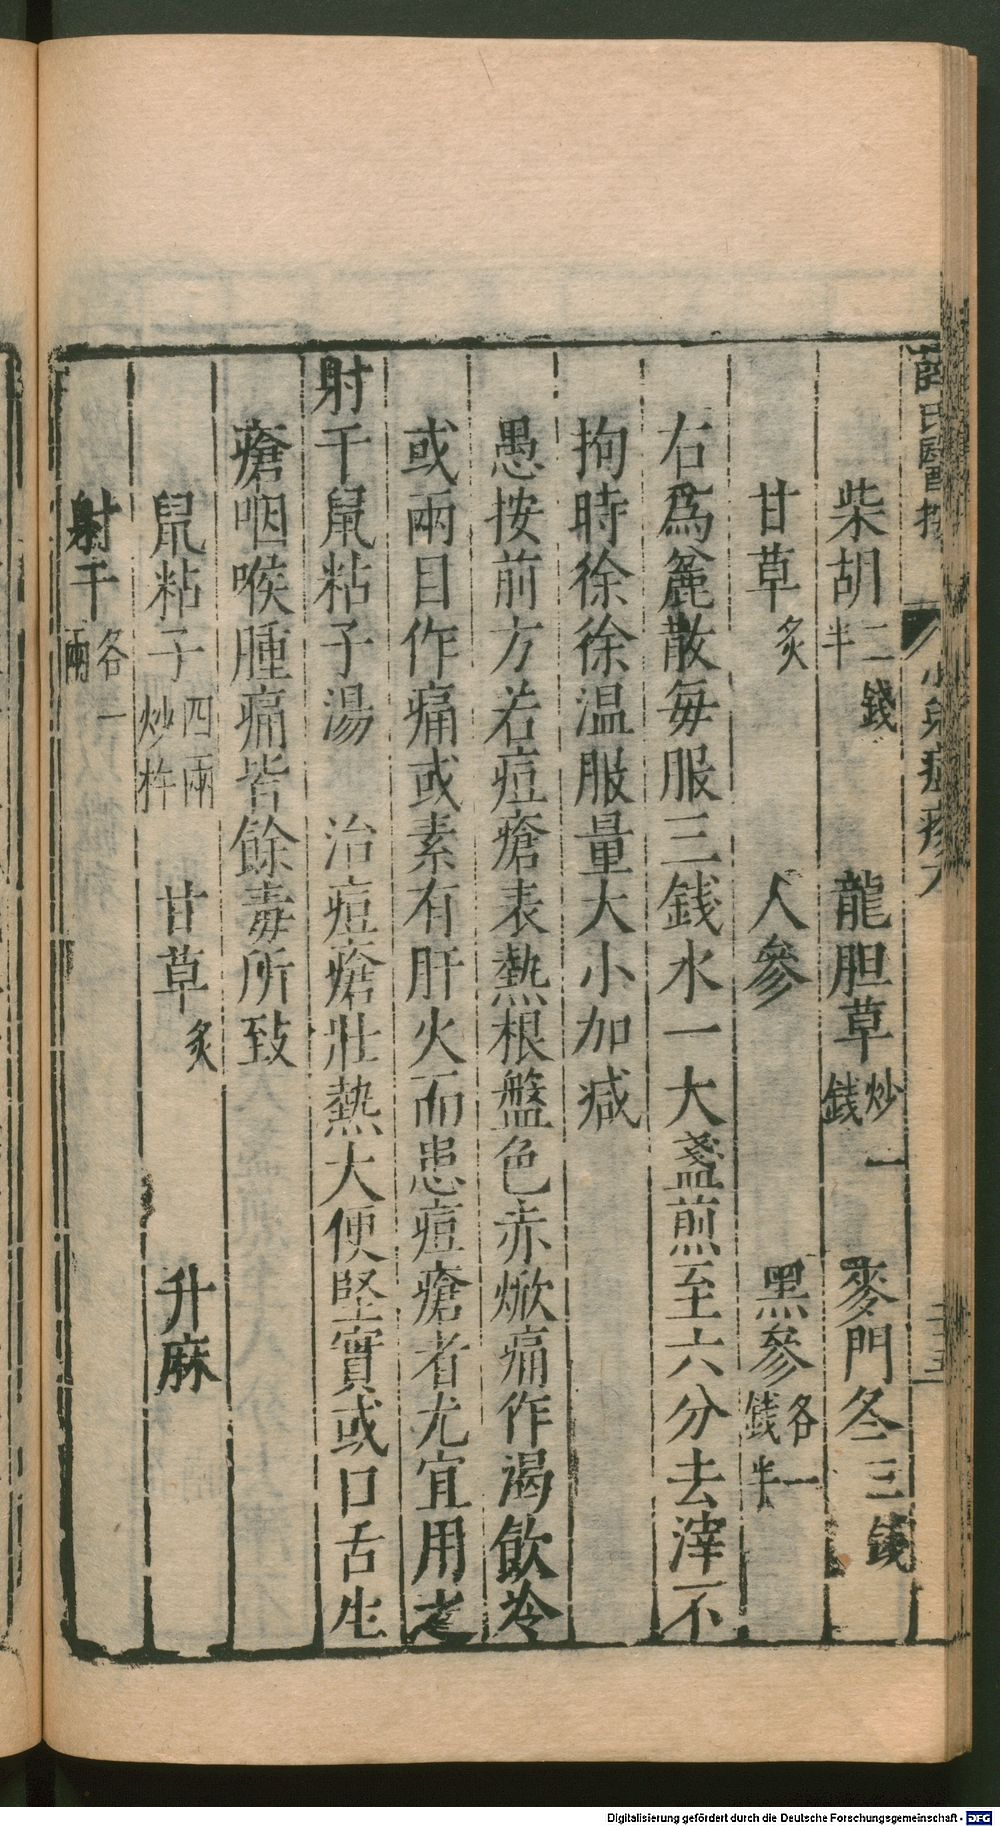 柴胡二錢半 龍胆草炒一錢 麥門冬三錢
甘草炙 人參 黑參各一錢半
右爲麄散每服三錢水一大盞煎至六分去滓不
拘時徐徐温服量大小加減
愚按前方若痘瘡表熱根盤色赤焮痛作渴飲冷
或兩目作痛或素有肝火而患痘瘡者尤宜用之
射干鼠粘子湯 治痘瘡壯熱大便堅實或口舌生
瘡咽喉腫痛皆餘毒所致
鼠粘子四兩炒杵 甘草炙 升麻
射干各一兩
薛氏醫按 小兒痘疹
Digitalisierung gefördert durch die Deutsche Forschungsgemeinschaft - DFG